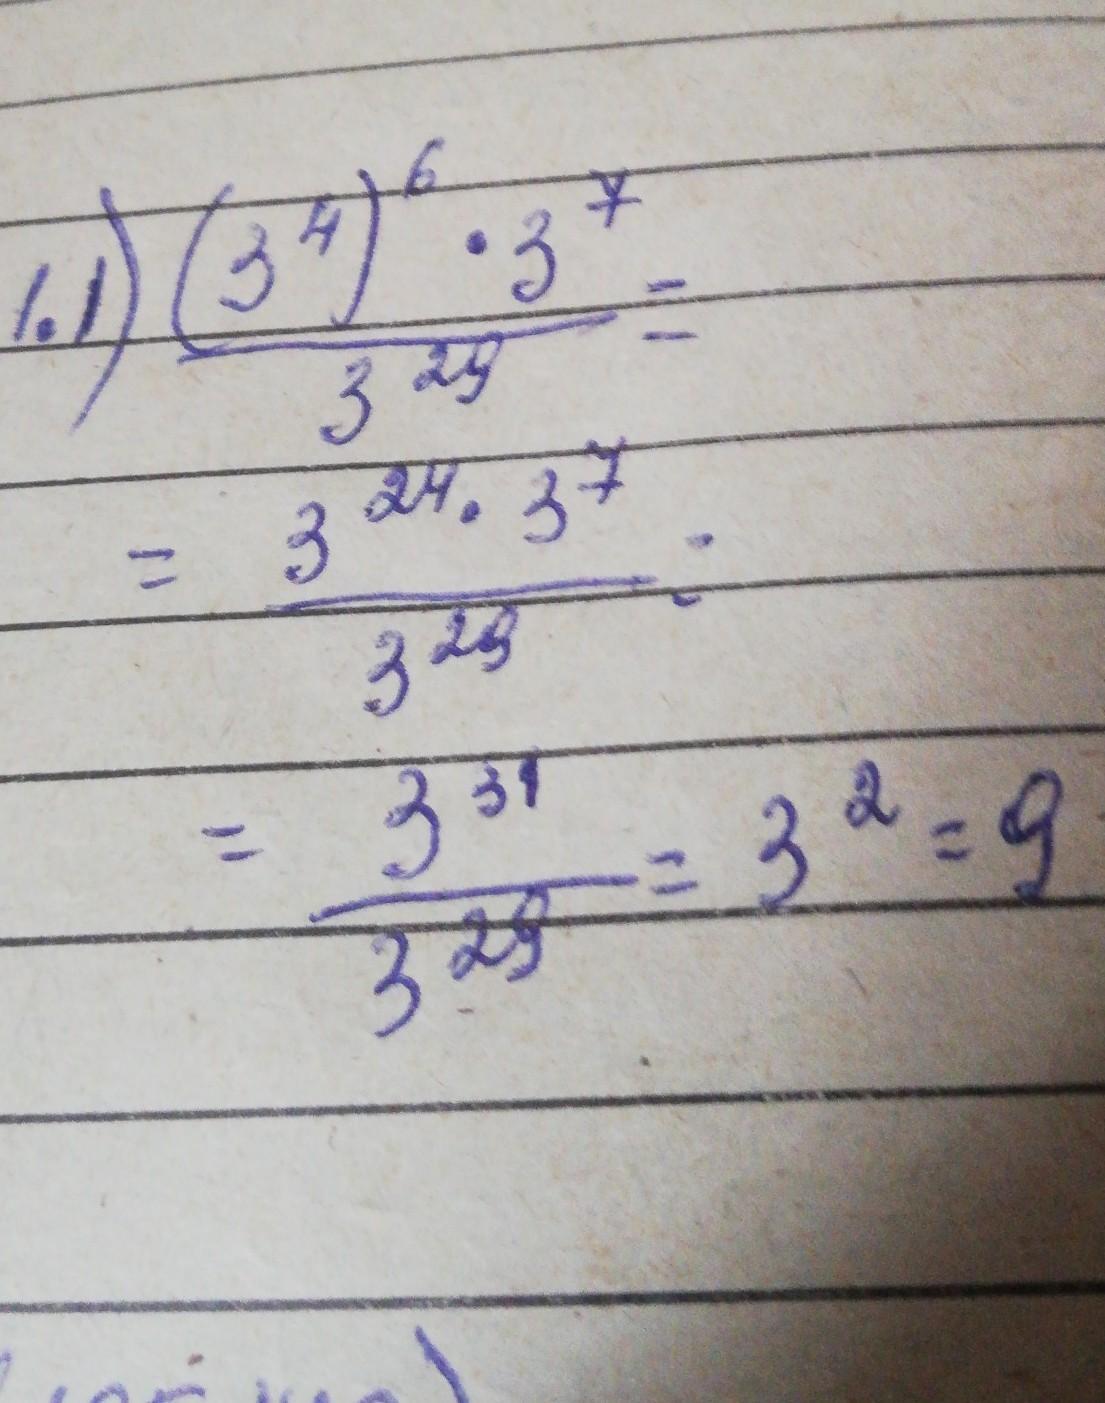 1.1) (3^4)^6 · 3^7 / 3^29 =
= 3^24 · 3^7 / 3^29 =
= 3^31 / 3^29 = 3^2 = 9